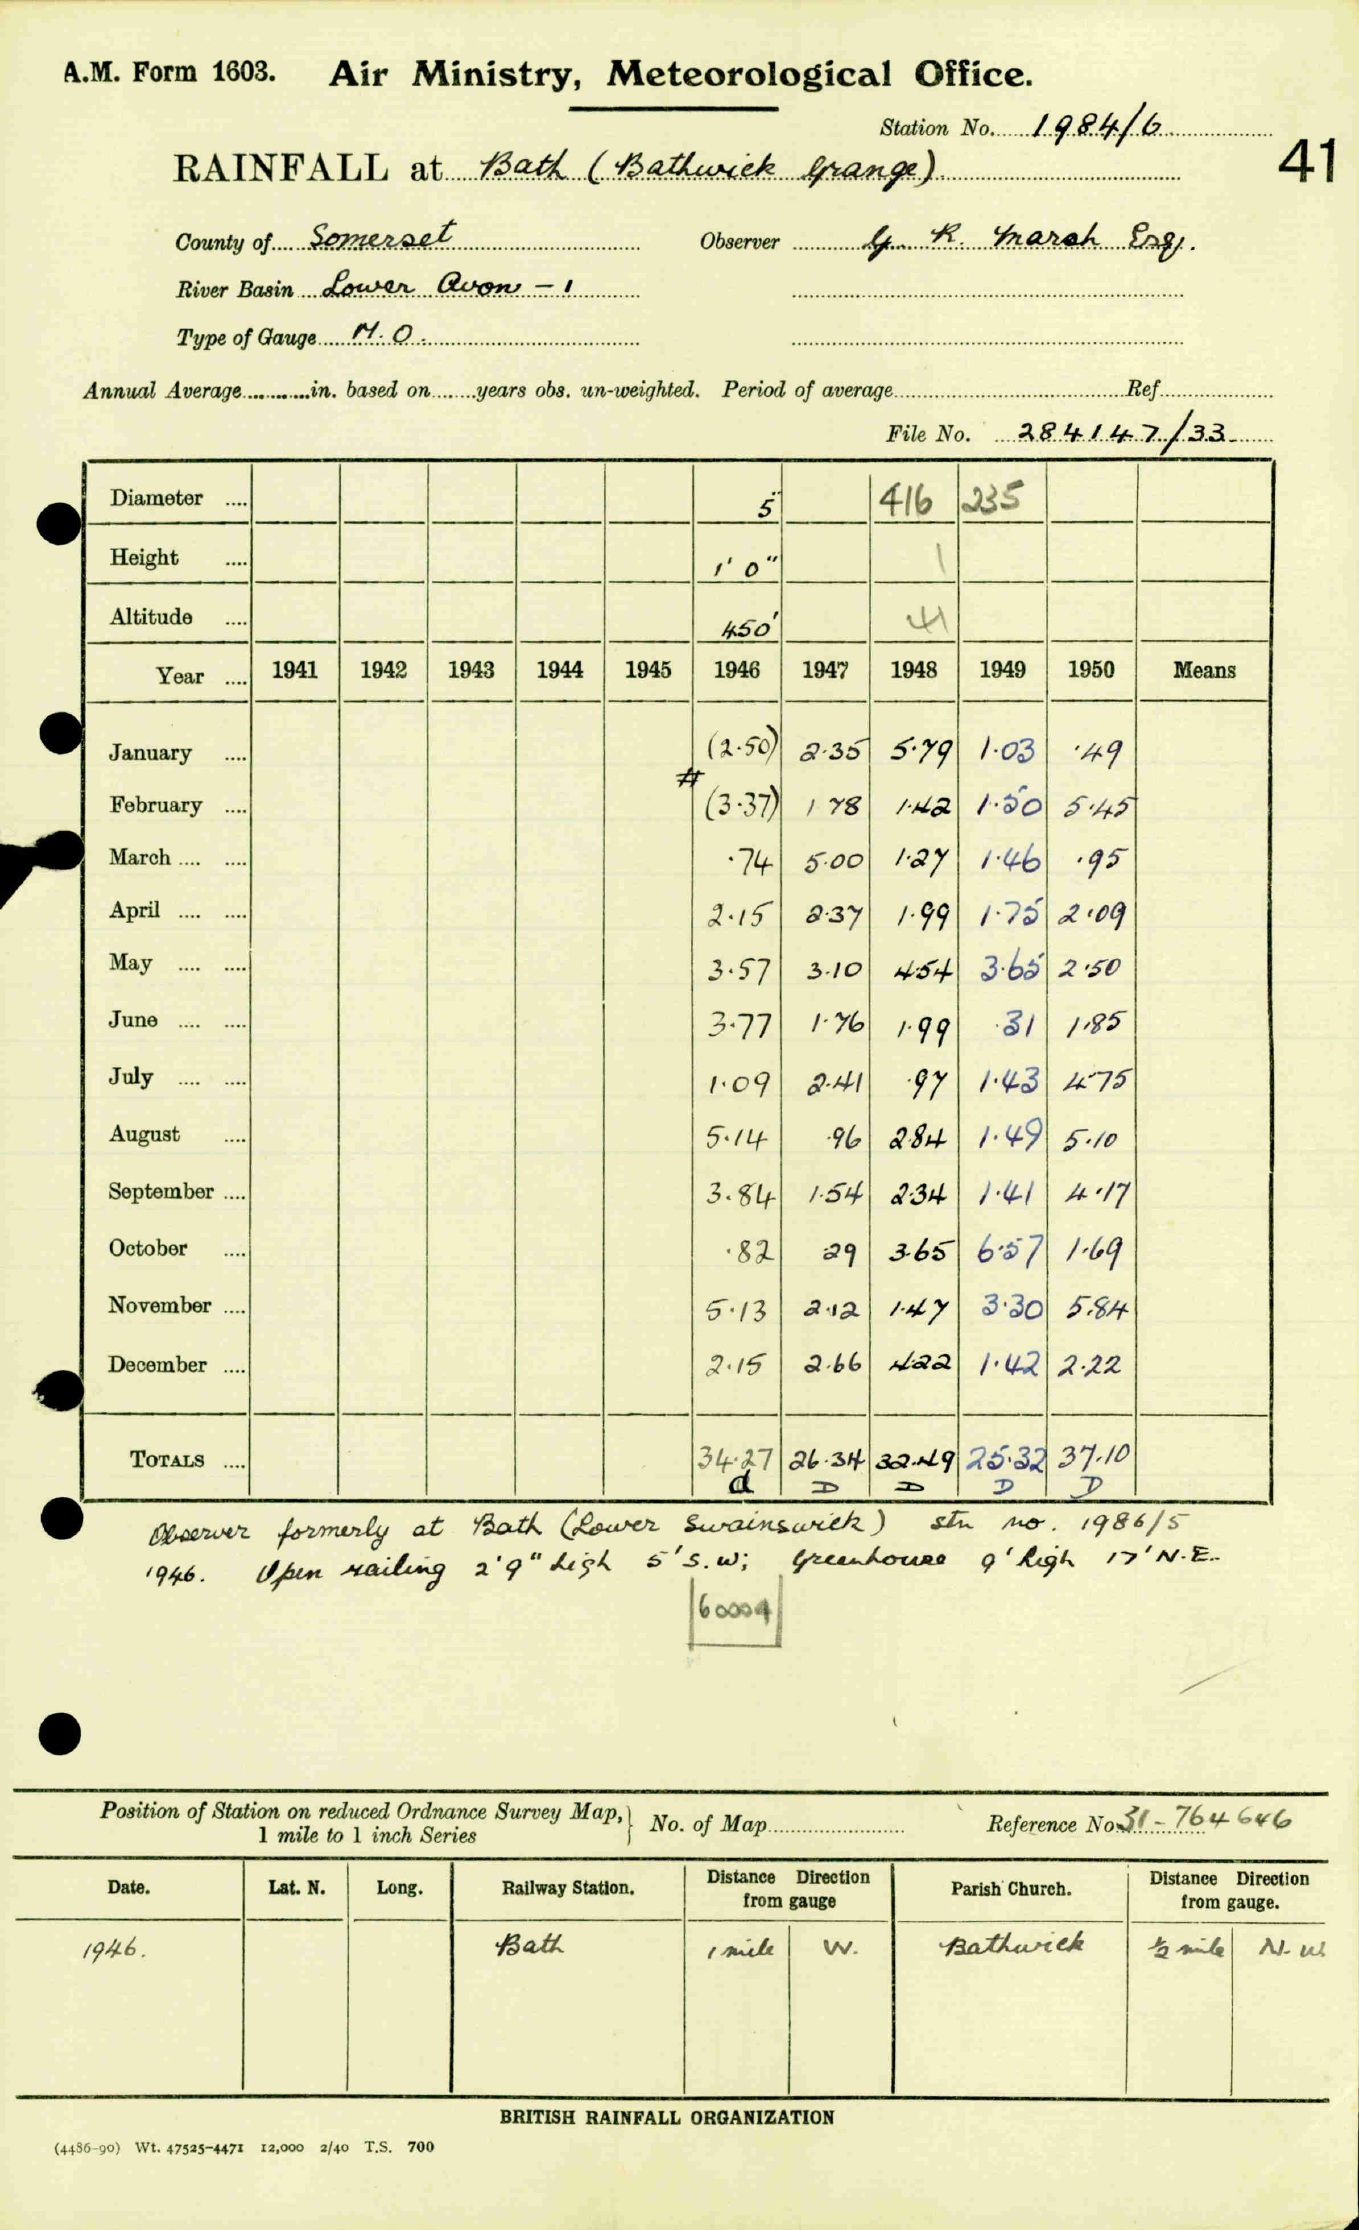 A.M. Form 1603. Air Ministry, Meteorological Office.
Station No. 1984/6
41
RAINFALL at Bath (Bathwick Grange)
County of Somerset Observer G. R. Marsh Esq.
River Basin Lower Avon - 1
Type of Gauge M.O.
Annual Average in. based on years obs. un-weighted. Period of average Ref
File No. 284147/33
Diameter 5" 416 235
Height 1' 0" 1
Altitude 450' 41
Year 1941 1942 1943 1944 1945 1946 1947 1948 1949 1950 Means
January (2.50) 2.35 5.79 1.03 .49
#
February (3.37) 1 78 1.42 1.50 5.45
March .74 5.00 1.27 1.46 .95
April 2.15 2.37 1.99 1.75 2.09
May 3.57 3.10 4.54 3.65 2.50
June 3.77 1.76 1.99 .31 1.85
July 1.09 2.41 .97 1.43 4.75
August 5.14 .96 2.84 1.49 5.10
September 3.84 1.54 2.34 1.41 4.17
October .82 .29 3.65 6.57 1.69
November 5.13 2.12 1.47 3.30 5.84
December 2.15 2.66 4.22 1.42 2.22
TOTALS 34.27 26.34 32.49 25.32 37.10
d D D D D
Observer formerly at Bath (Lower Swainswick) stn no. 1986/5
1946. Open railing 2'9" high 5' S.W; Greenhouse 9' high 17' N.E.
60004
Position of Station on reduced Ordnance Survey Map, 1 mile to 1 inch Series } No. of Map Reference No. 31-764646
Date. Lat. N. Long. Railway Station. Distance Direction from gauge Parish Church. Distance Direction from gauge.
1946. Bath 1 mile W. Bathwick ½ mile N.W.
BRITISH RAINFALL ORGANIZATION
(4486-90) Wt. 47525-4471 12,000 2/40 T.S. 700